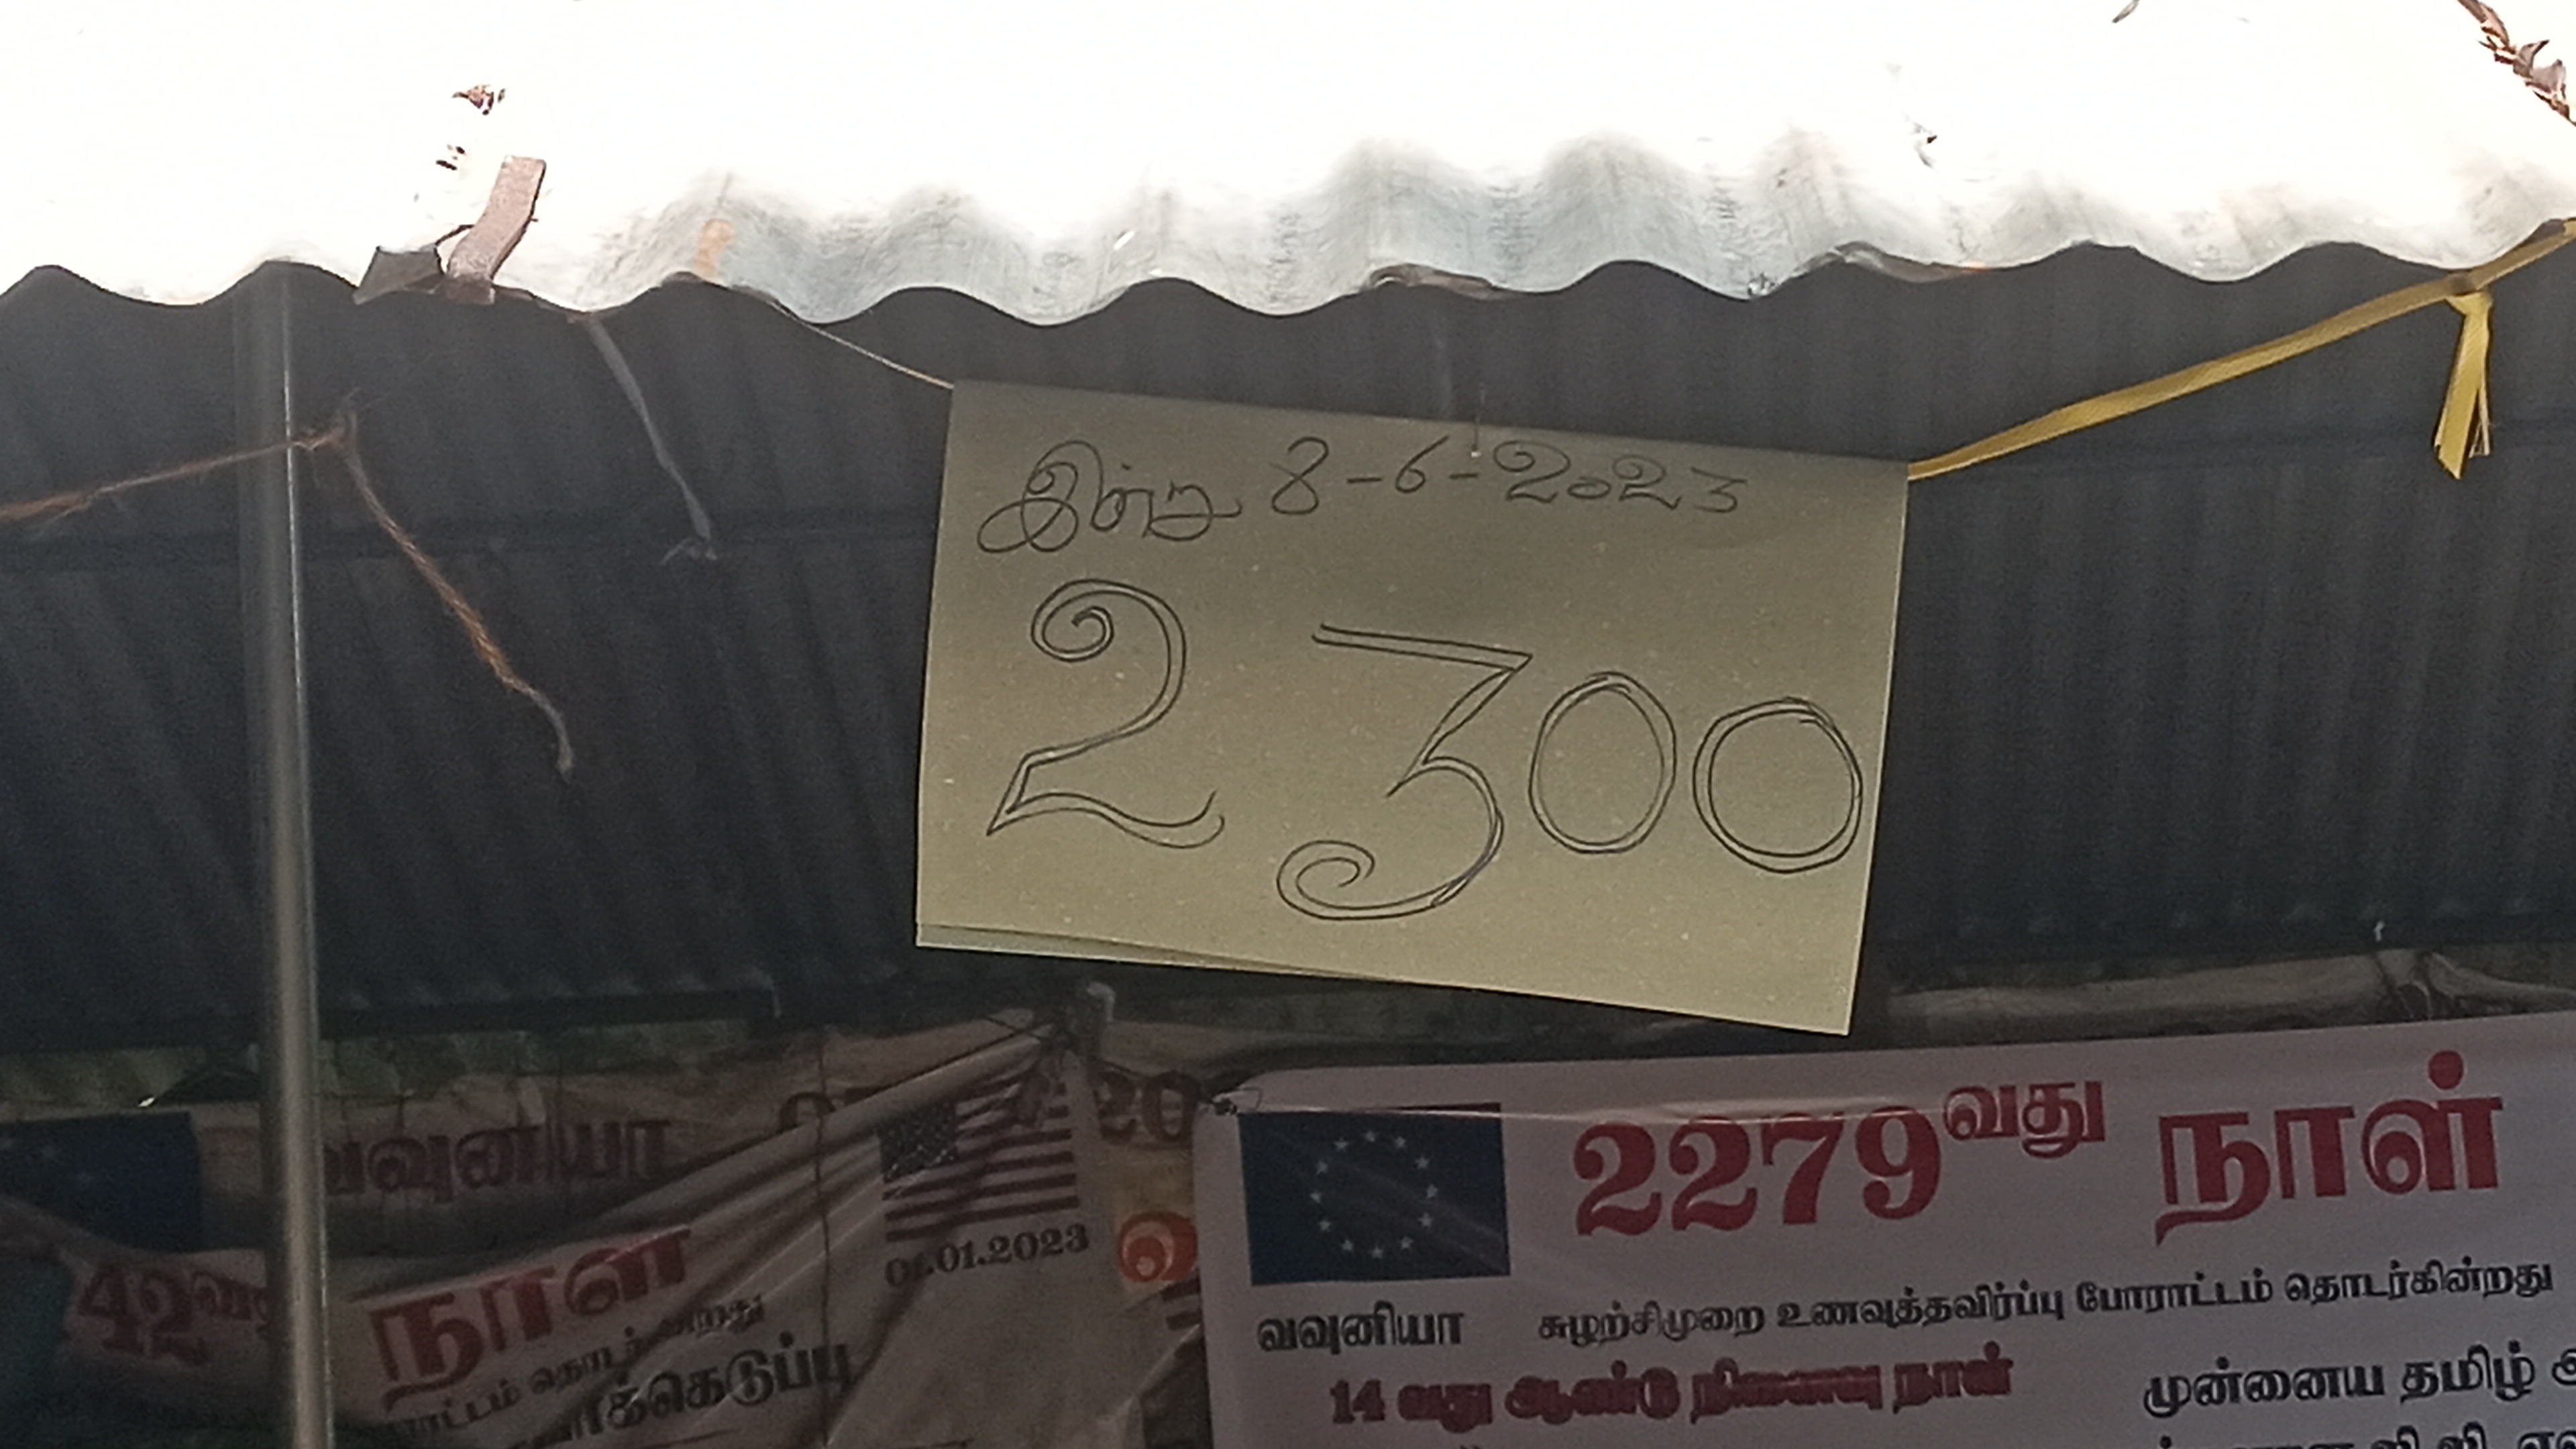 இன்று 8-6-2023
2300
வவுனியா
20
நாள்
01.2023
42வது
தொடர்கின்றது
2279வது நாள்
வவுனியா சுழற்சிமுறை உணவுத்தவிர்ப்பு போராட்டம் தொடர்கின்றது
14 வது ஆண்டு நினைவு நாள்
முன்னைய தமிழ்